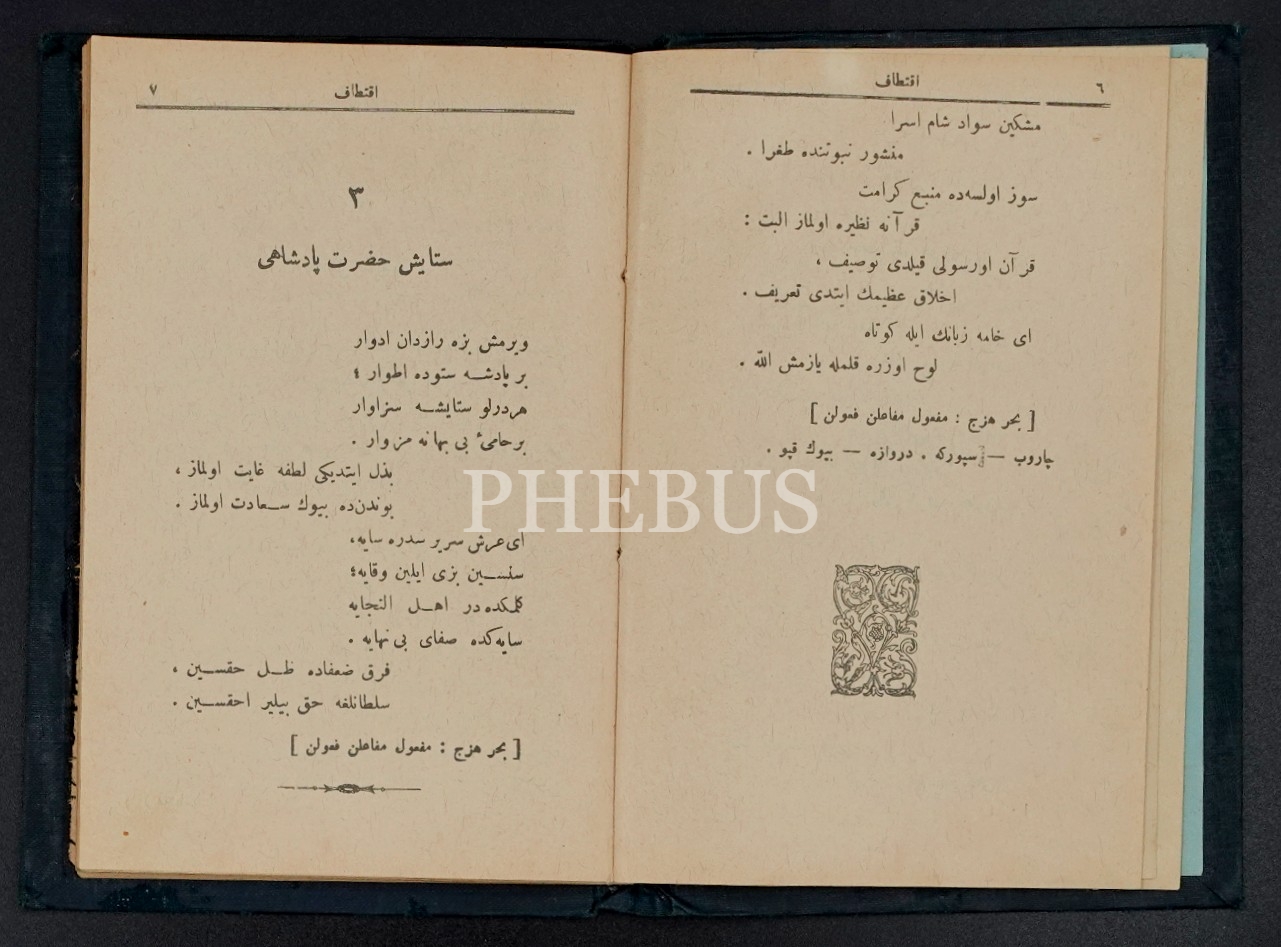 ٦
اقتطاف
مشكين سواد شام اسرا
منشور نبوتنده طغرا .
سوز اولسه‌ده منبع كرامت
قرآنه نظيره اولماز البت :
قرآن اورسولی قيلدی توصيف ،
اخلاق عظيمك ايتدی تعريف .
ای خامه زبانك ايله كوتاه
لوح اوزره قلمله يازمش الله .
[ بحر هزج : مفعول مفاعلن فعولن ]
چاروب — سپورکه . دروازه — بيوك قپو .
اقتطاف
٧
٣
ستايش حضرت پادشاهی
ويرمش بزه رازدان ادوار
بر پادشه ستوده اطوار ؛
هردرلو ستايشه سزاوار
برحامیٔ بی بهانه مزوار .
بذل ايتديكی لطفه غايت اولماز ،
بوندن‌ده بيوك سعادت اولماز .
ای عرش سرير سدره سايه،
سنسين بزی ايلين وقايه؛
كلمكده در اهل النجايه
سايه‌كده صفای بی نهايه .
فرق ضعفاده ظل حقسين ،
سلطانلغه حق بيلير احقسين .
[ بحر هزج : مفعول مفاعلن فعولن ]
PHEBUS